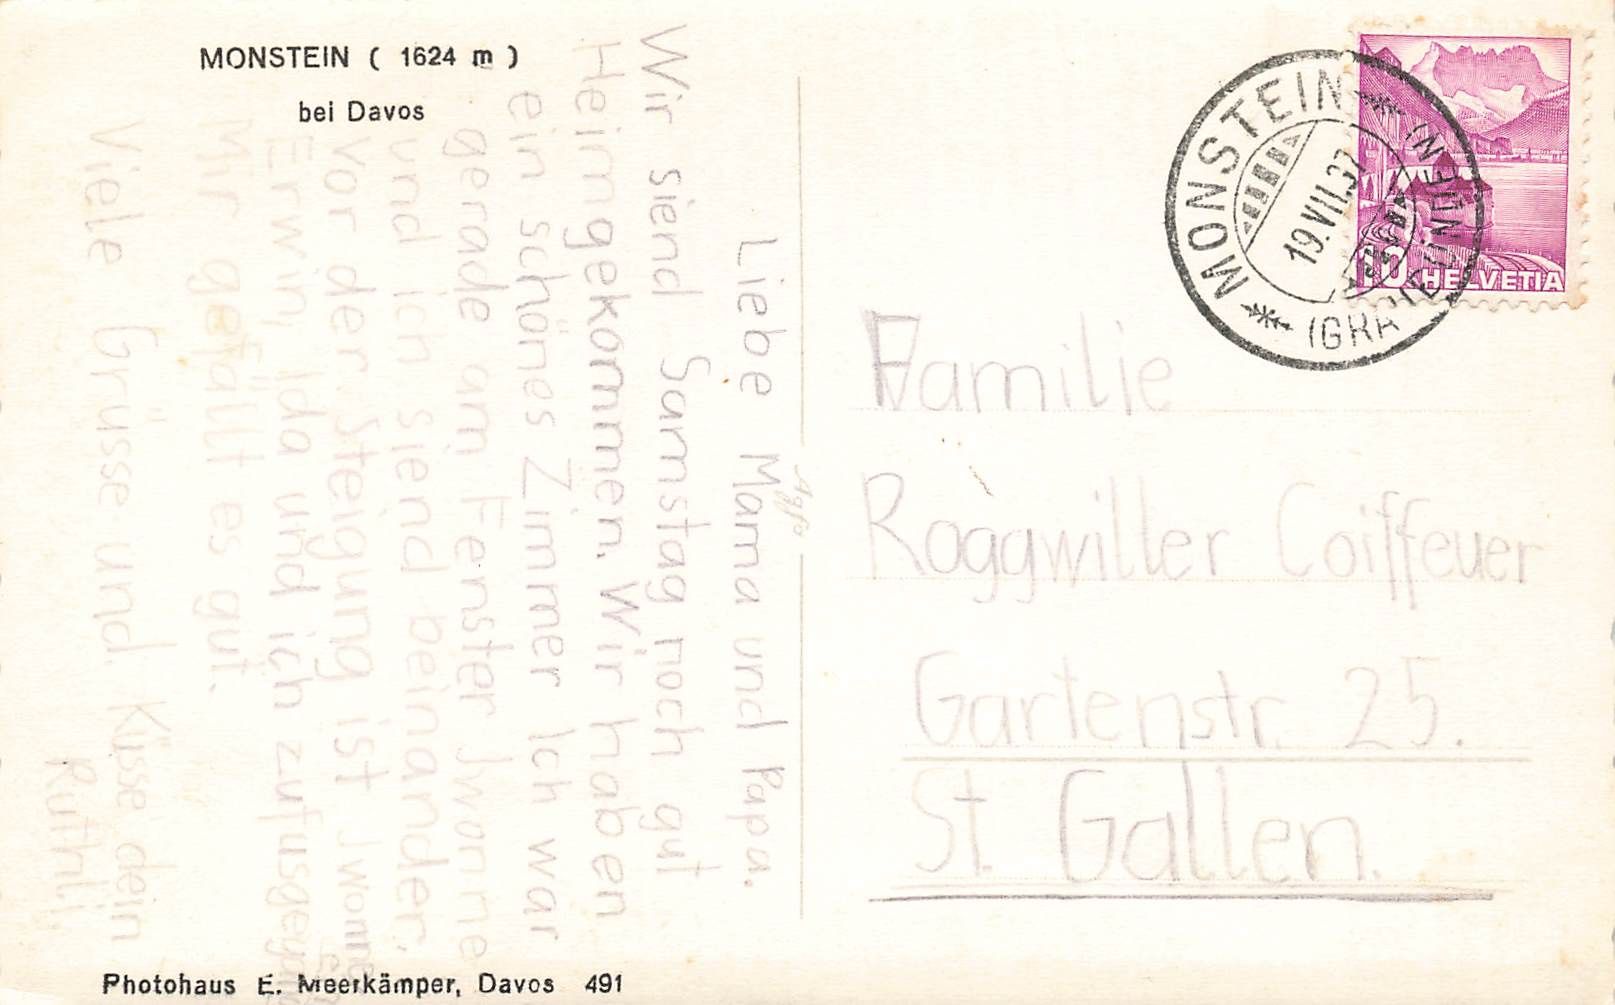 MONSTEIN ( 1624 m )
bei Davos
Liebe Mama und Papa.
Wir siend Samstag noch gut
Heimgekommen. Wir haben
ein schönes Zimmer Ich war
gerade am Fenster Jwonne
und ich siend beinander.
Vor der Steigung ist Jwonne
Erwin, Ida und ich zufusgegangen
Mir gefällt es gut.
Viele Grüsse und Küsse dein
Ruthli
Photohaus E. Meerkämper, Davos 491
Agfa
MONSTEIN
(GRAUBÜNDEN)
19.VII.37
10 HELVETIA
Familie
Roggwiller Coiffeuer
Gartenstr. 25.
St. Gallen.